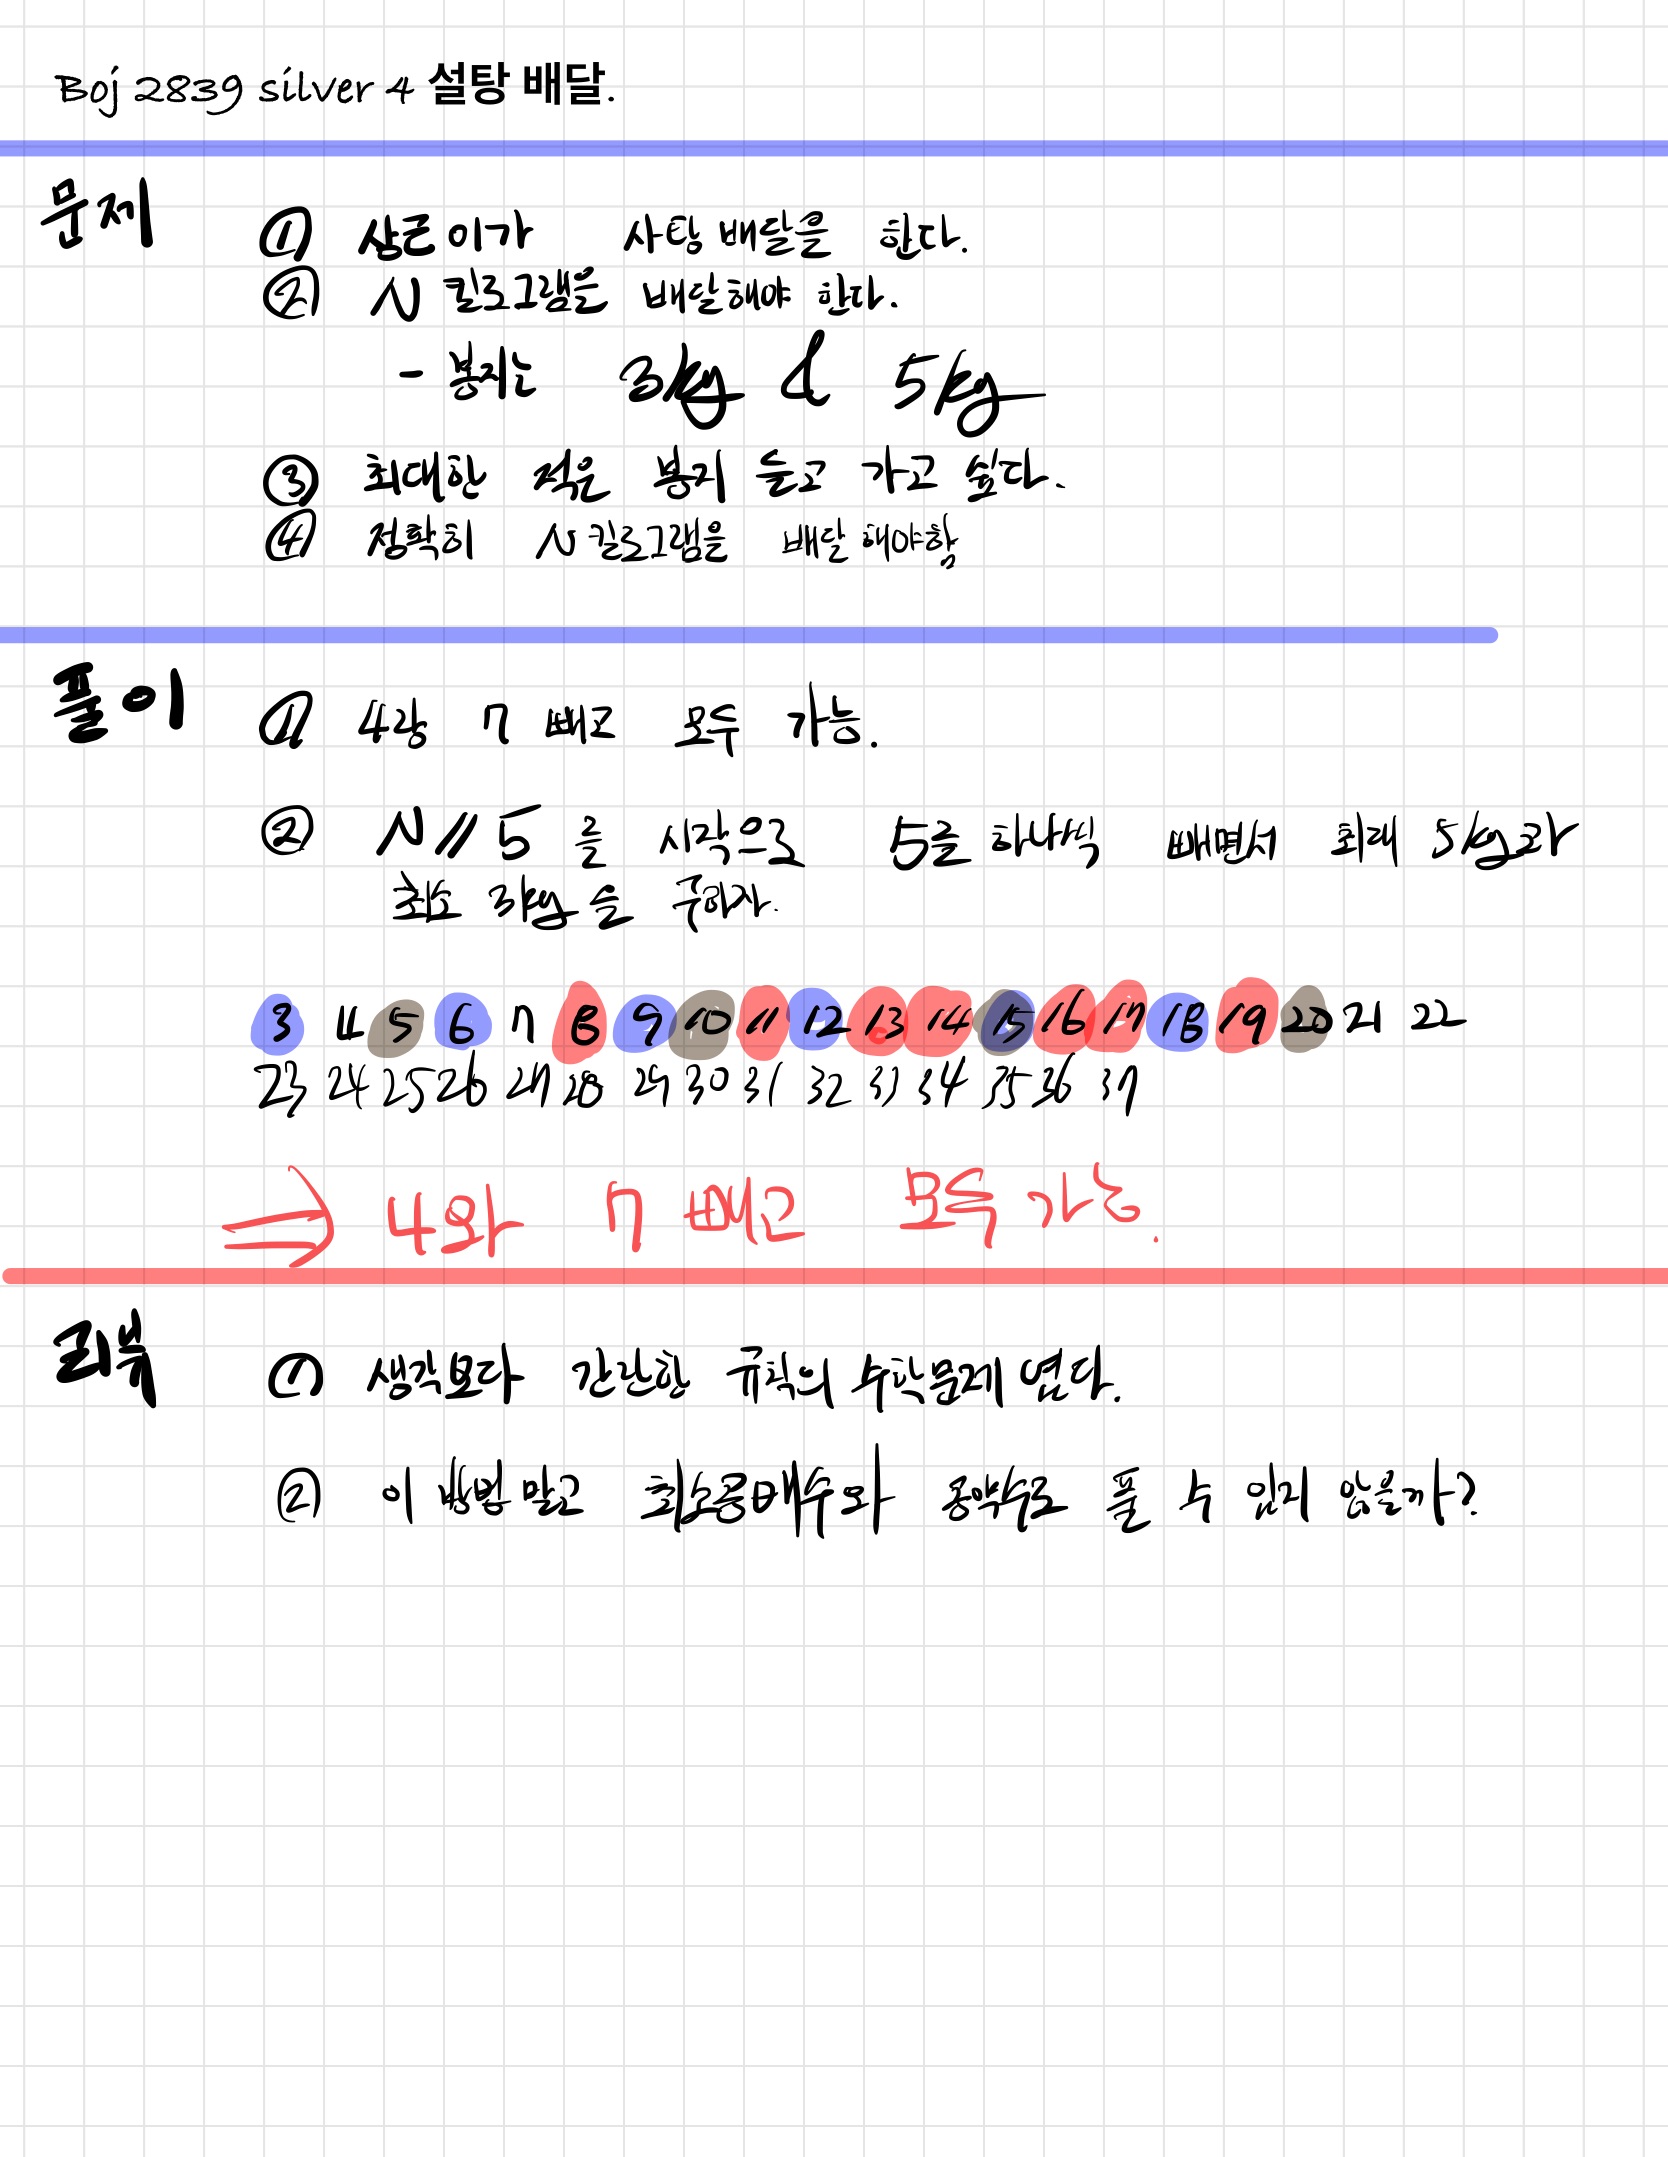 Boj 2839 silver 4 설탕 배달.
문제
① 상근이가 사탕 배달을 한다.
② N 킬로그램을 배달해야 한다.
- 봉지는 3kg & 5kg
③ 최대한 적은 봉지 들고 가고 싶다.
④ 정확히 N킬로그램을 배달해야함
풀이
① 4랑 7 빼고 모두 가능.
② N//5 를 시작으로 5를 하나씩 빼면서 최대 5kg과
최소 3kg을 구하자.
3 4 5 6 7 8 9 10 11 12 13 14 15 16 17 18 19 20 21 22
23 24 25 26 27 28 29 30 31 32 33 34 35 36 37
⇒ 4와 7 빼고 모두 가능.
리뷰
① 생각보다 간단한 규칙의 수학문제 였다.
② 이 방법 말고 최소공배수와 공약수로 풀 수 있지 않을까?